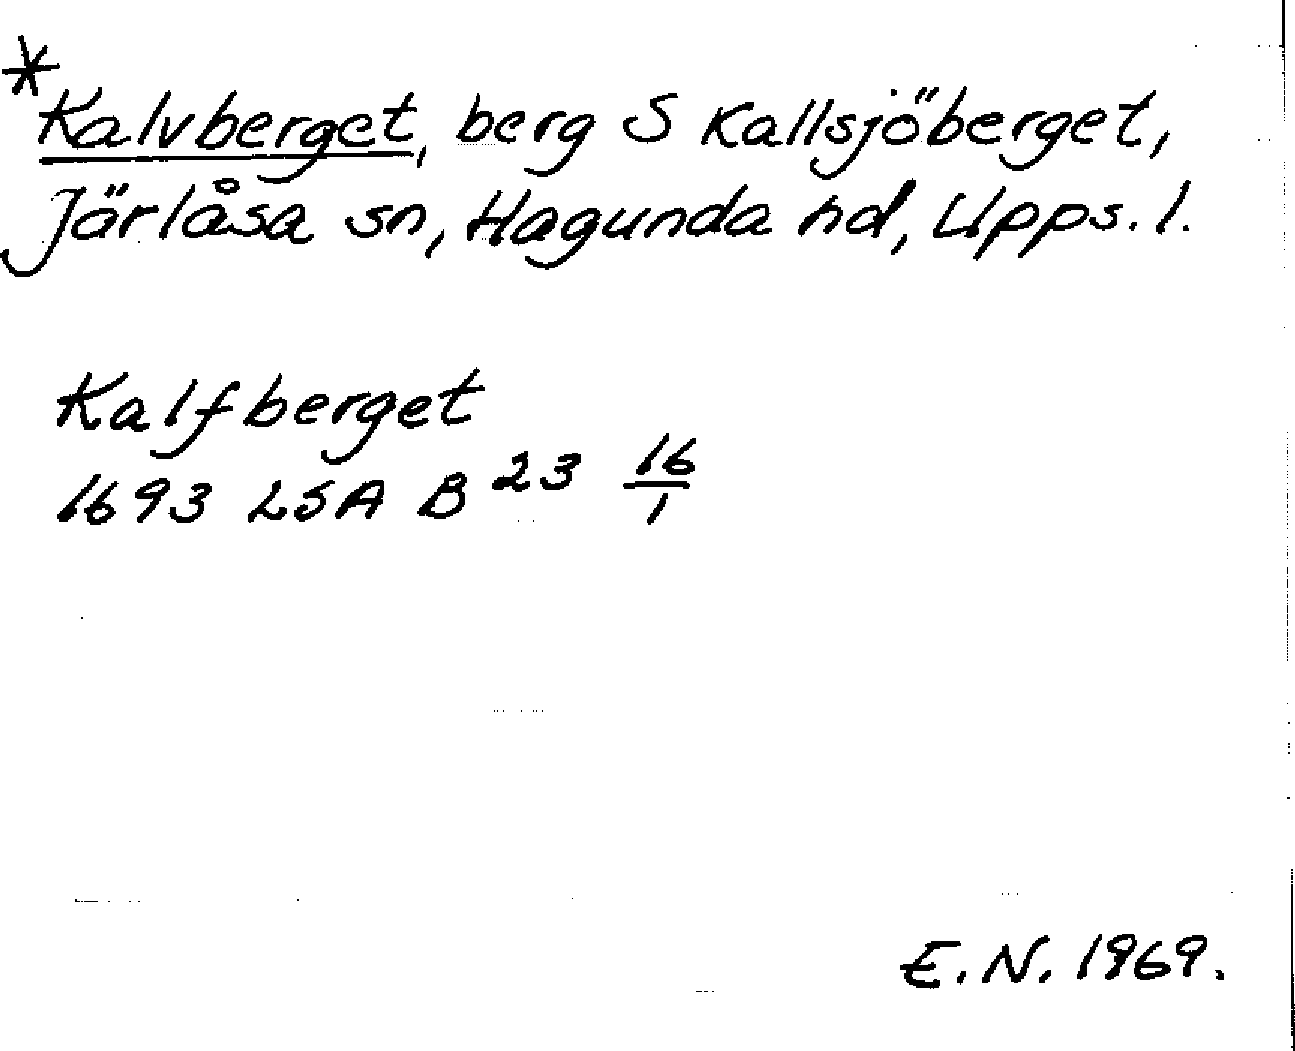 *Kalvberget, berg S Kallsjöberget,
Järlåsa sn, Hagunda hd, Upps. l.
Kalfberget
1693 LSA B 23 16/1
E.N. 1969.